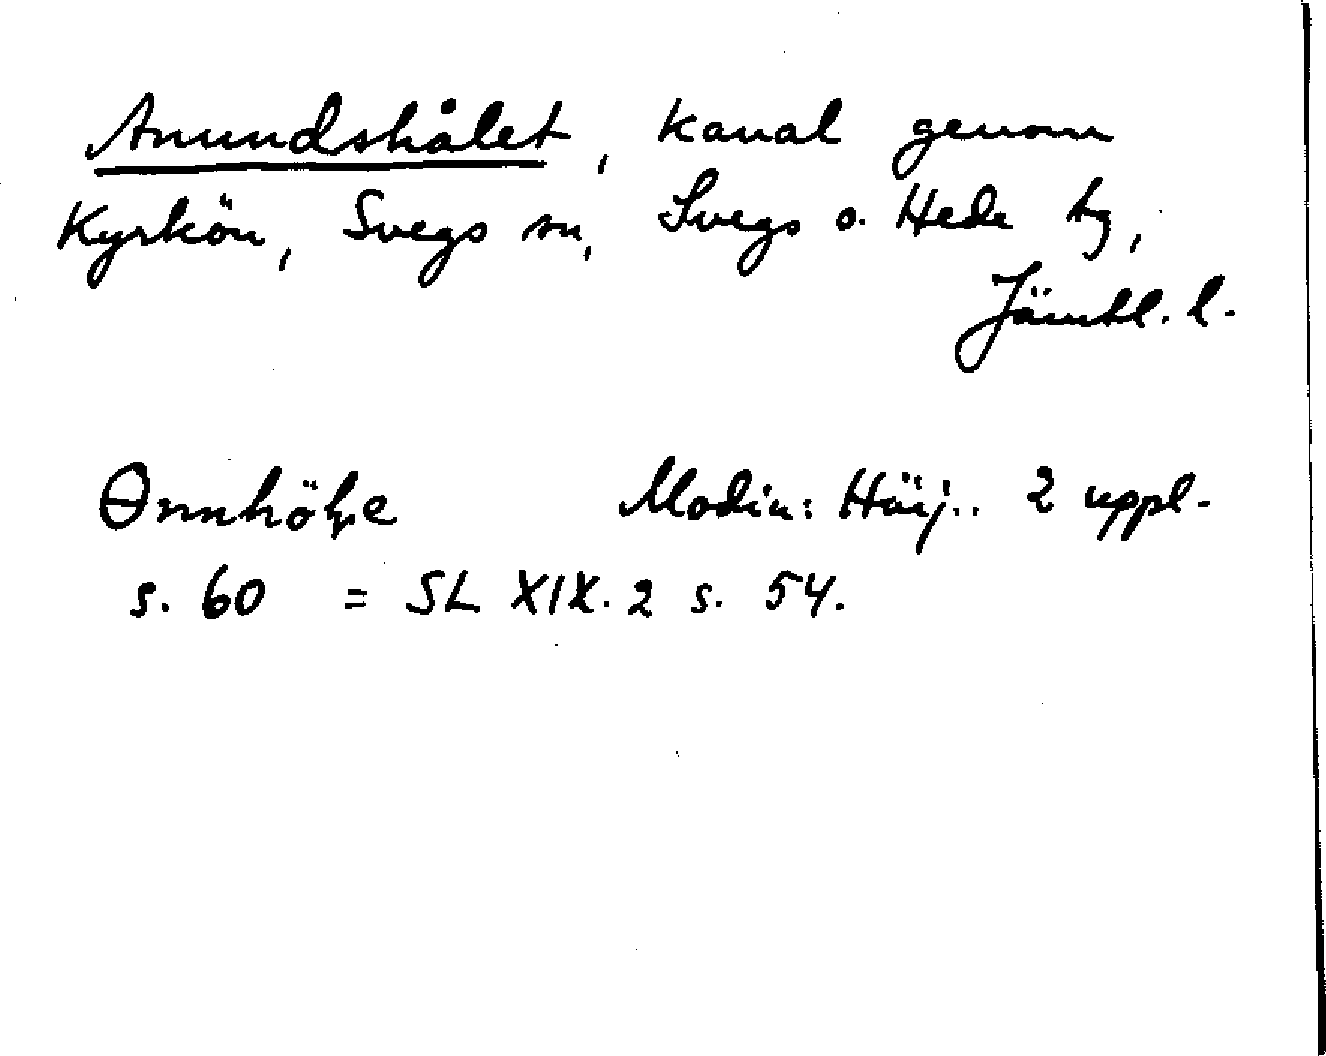 Anundshålet, kanal genom
Kyrkön, Svegs sn, Svegs o. Hede tg,
Jämtl. l.
Modin: Härj. 2 uppl.
s. 60 = SL XIX. 2 s. 54.